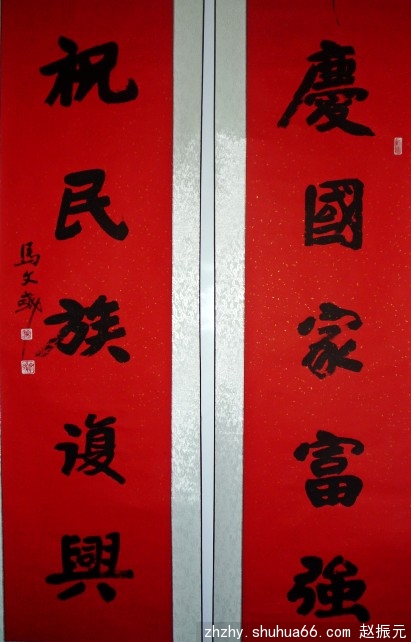 慶國家富強
祝民族復興
馬文
zhzhy.shuhua66.com 赵振元